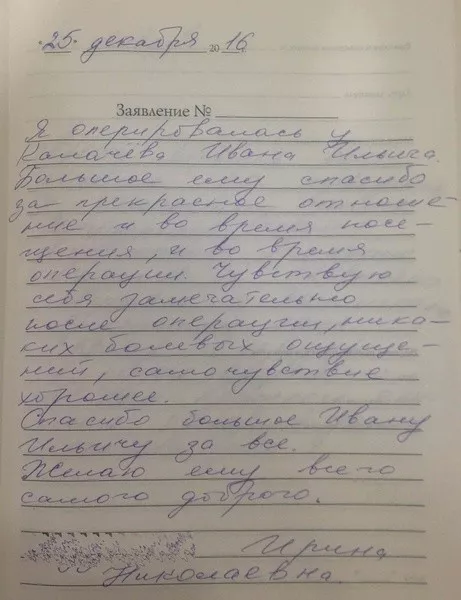 25 декабря 2016 г.
Заявление №
Я оперировалась у
Калачёва Ивана Ильича.
Большое ему спасибо
за прекрасное отноше-
ние и во время посе-
щения, и во время
операции. Чувствую
себя замечательно
после операции, ника-
ких болевых ощуще-
ний, самочувствие
хорошее.
Спасибо большое Ивану
Ильичу за все.
Желаю ему всего
самого доброго.
Ирина
Николаевна.